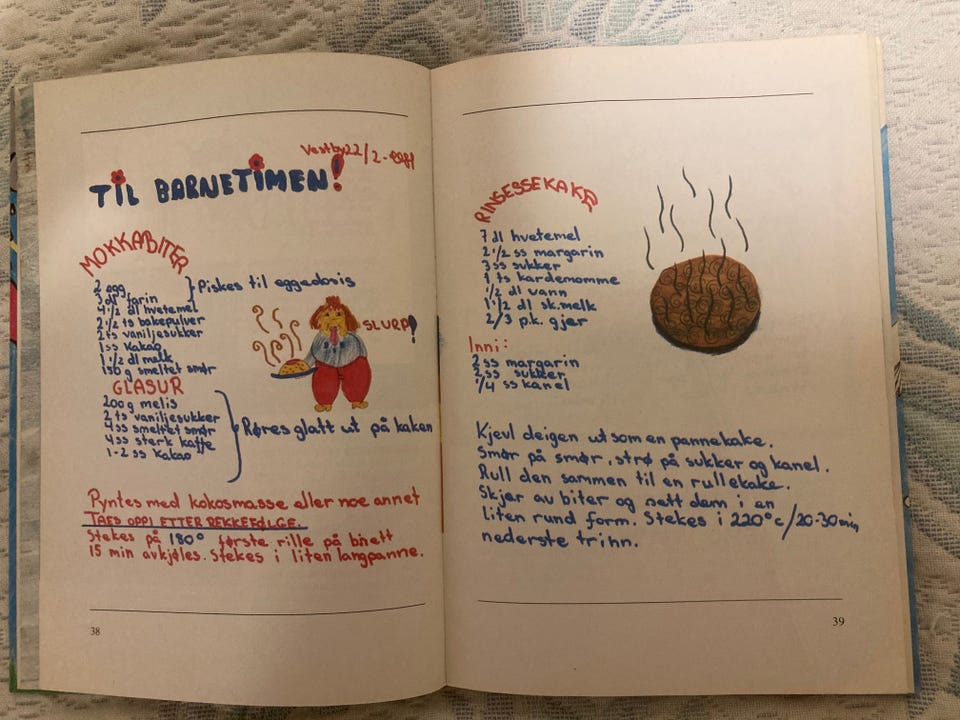 Vestby 22/2-
TIL BARNETIMEN!
MOKKABITER
2 egg
3 dl farin
Piskes til eggedosis
4 1/2 dl hvetemel
2 1/2 ts bakepulver
2 ts vaniljesukker
1 ss kakao
1 1/2 dl melk
150 g smeltet smør
SLURP!
GLASUR
200 g melis
2 ts vaniljesukker
4 ss smeltet smør
4 ss sterk kaffe
1-2 ss kakao
Røres glatt ut på kaken
Pyntes med kokosmasse eller noe annet
TAES OPPI ETTER REKKEFØLGE.
Stekes på 180° første rille på
15 min avkjøles. Stekes i liten langpanne.
38
RINSESSEKAKE
7 dl hvetemel
2 1/2 ss margarin
3 ss sukker
1 ts kardemomme
1/2 dl vann
1 1/2 dl sk.melk
2/3 p.k. gjer
Inni:
2 ss margarin
2 ss sukker
1/4 ss kanel
Kjevl deigen ut som en pannekake.
Smør på smør, strø på sukker og kanel.
Rull den sammen til en rullekake.
Skjer av biter og sett dem i en
liten rund form. Stekes i 220°c/20-30 min
nederste trinn.
39